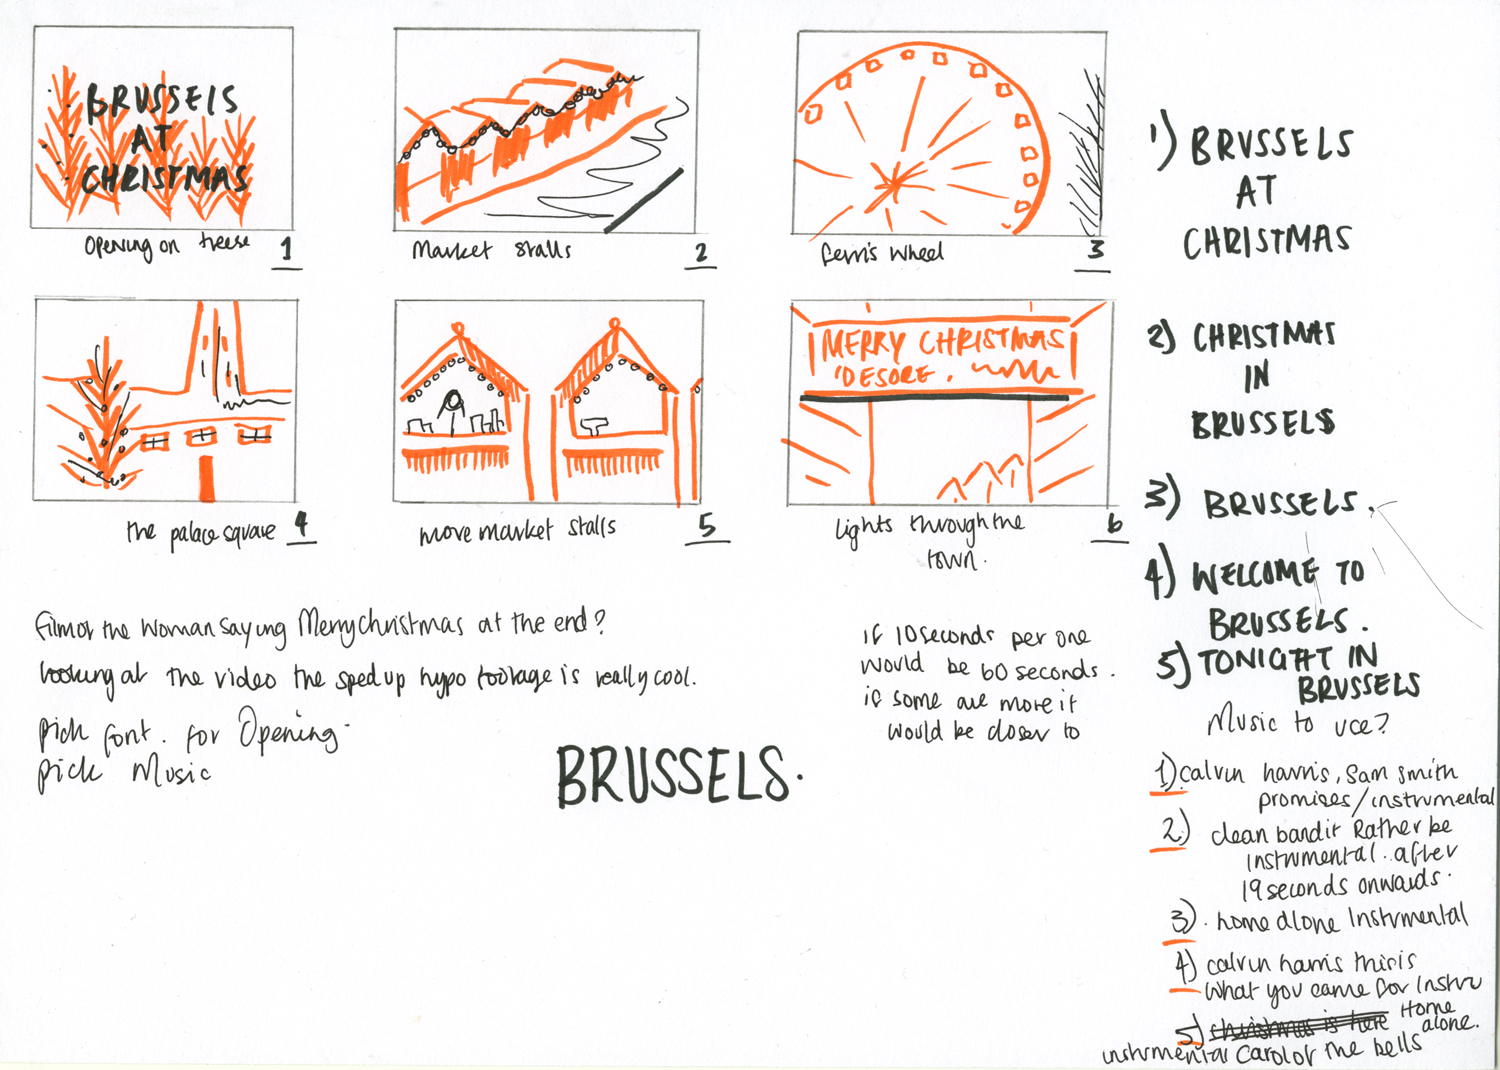 BRUSSELS
AT
CHRISTMAS
Opening on treese 1
Market stalls 2
ferris wheel 3
the palace square 4
more market stalls 5
MERRY CHRISTMAS
DESORE.
Lights through the
town. 6
Film of the woman saying Merry Christmas at the end?
looking at the video the sped up hypo footage is really cool.
pick font. for Opening
pick Music
BRUSSELS.
if 10 seconds per one
would be 60 seconds.
if some are more it
would be closer to
1) BRUSSELS
AT
CHRISTMAS
2) CHRISTMAS
IN
BRUSSELS
3) BRUSSELS.
4) WELCOME TO
BRUSSELS.
5) TONIGHT IN
BRUSSELS
Music to use?
1) calvin harris, Sam smith
promises/instrumental
2) clean bandit Rather be
instrumental. after
19 seconds onwards.
3). home alone Instrumental
4) calvin harris this is
what you came for Instru
5) christmas is here Home
alone.
instrumental Carol of the bells